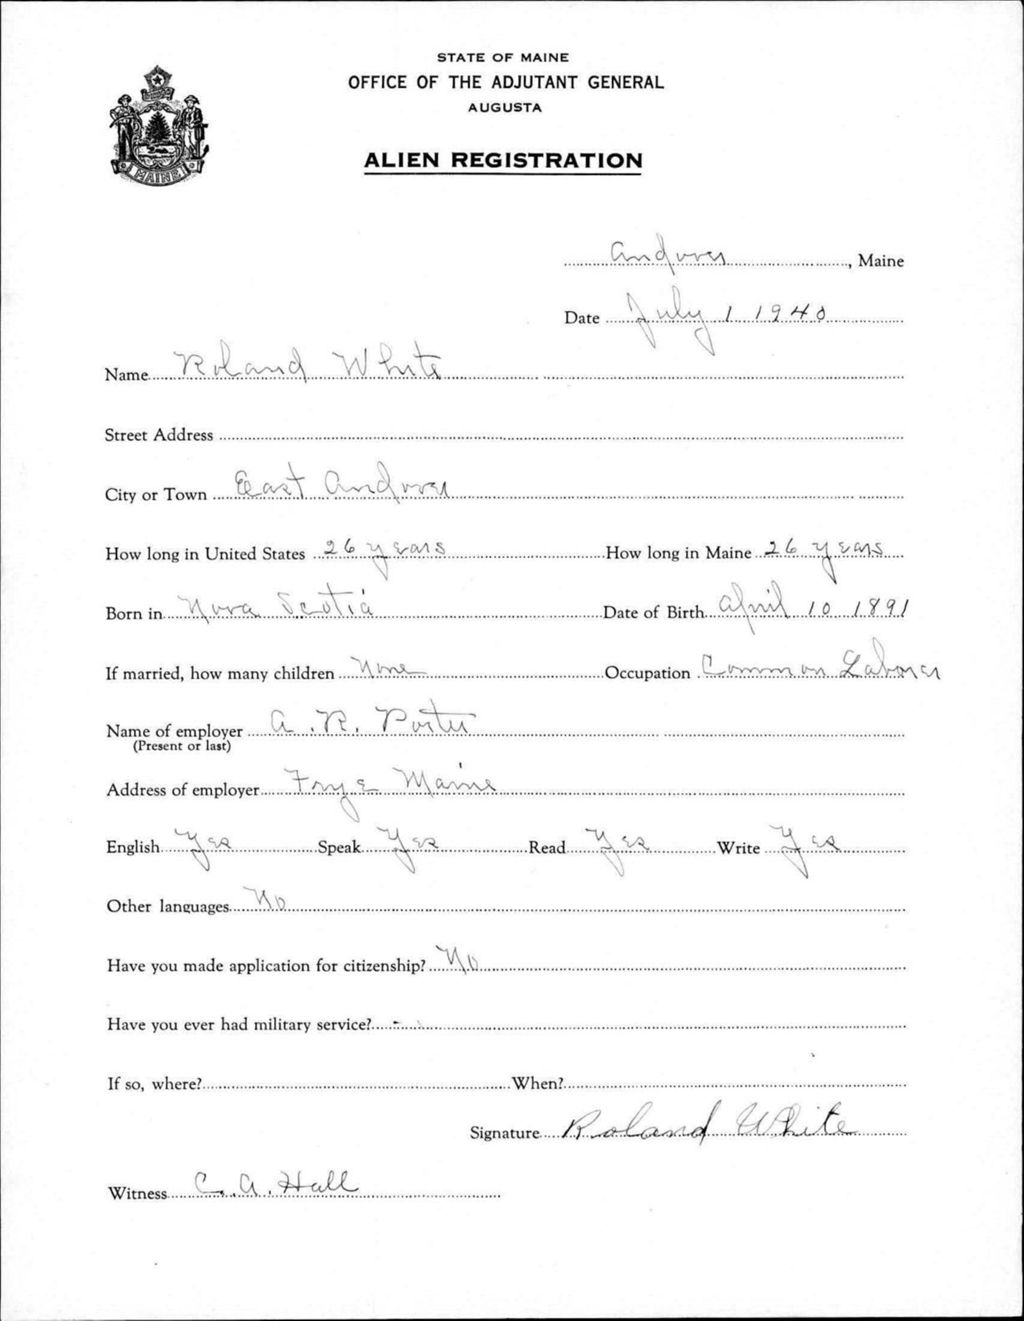 STATE OF MAINE
OFFICE OF THE ADJUTANT GENERAL
AUGUSTA
MAINE
ALIEN REGISTRATION
Andover, Maine
Date July 1 1940
Name Roland White
Street Address
City or Town East Andover
How long in United States 26 years How long in Maine 26 years
Born in Nova Scotia Date of Birth April 10 1891
If married, how many children None Occupation Common Laborer
Name of employer A. R. Porter
(Present or last)
Address of employer Frye Maine
English Yes Speak Yes Read Yes Write Yes
Other languages No
Have you made application for citizenship? No
Have you ever had military service? -
If so, where? When?
Signature Roland White
Witness C. A. Hall